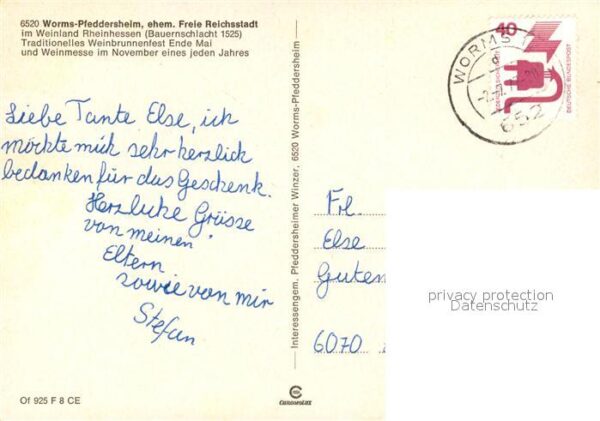 6520 Worms-Pfeddersheim, ehem. Freie Reichsstadt
im Weinland Rheinhessen (Bauernschlacht 1525)
Traditionelles Weinbrunnenfest Ende Mai
und Weinmesse im November eines jeden Jahres
Liebe Tante Else, ich
möchte mich sehr herzlich
bedanken für das Geschenk.
Herzliche Grüsse
von meinen
Eltern
sowie von mir
Stefan
Of 925 F 8 CE
Interessengem. Pfeddersheimer Winzer, 6520 Worms-Pfeddersheim
CHROMOLUX
40
DEUTSCHE BUNDESPOST
WORMS
652
Frl.
Else
Guten
6070
privacy protection
Datenschutz